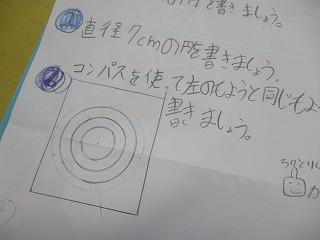 円を書きましょう。
① 直径7cmの円を書きましょう。
② コンパスを使って左のもようと同じもよ
書きましょう。
ちりとり
か